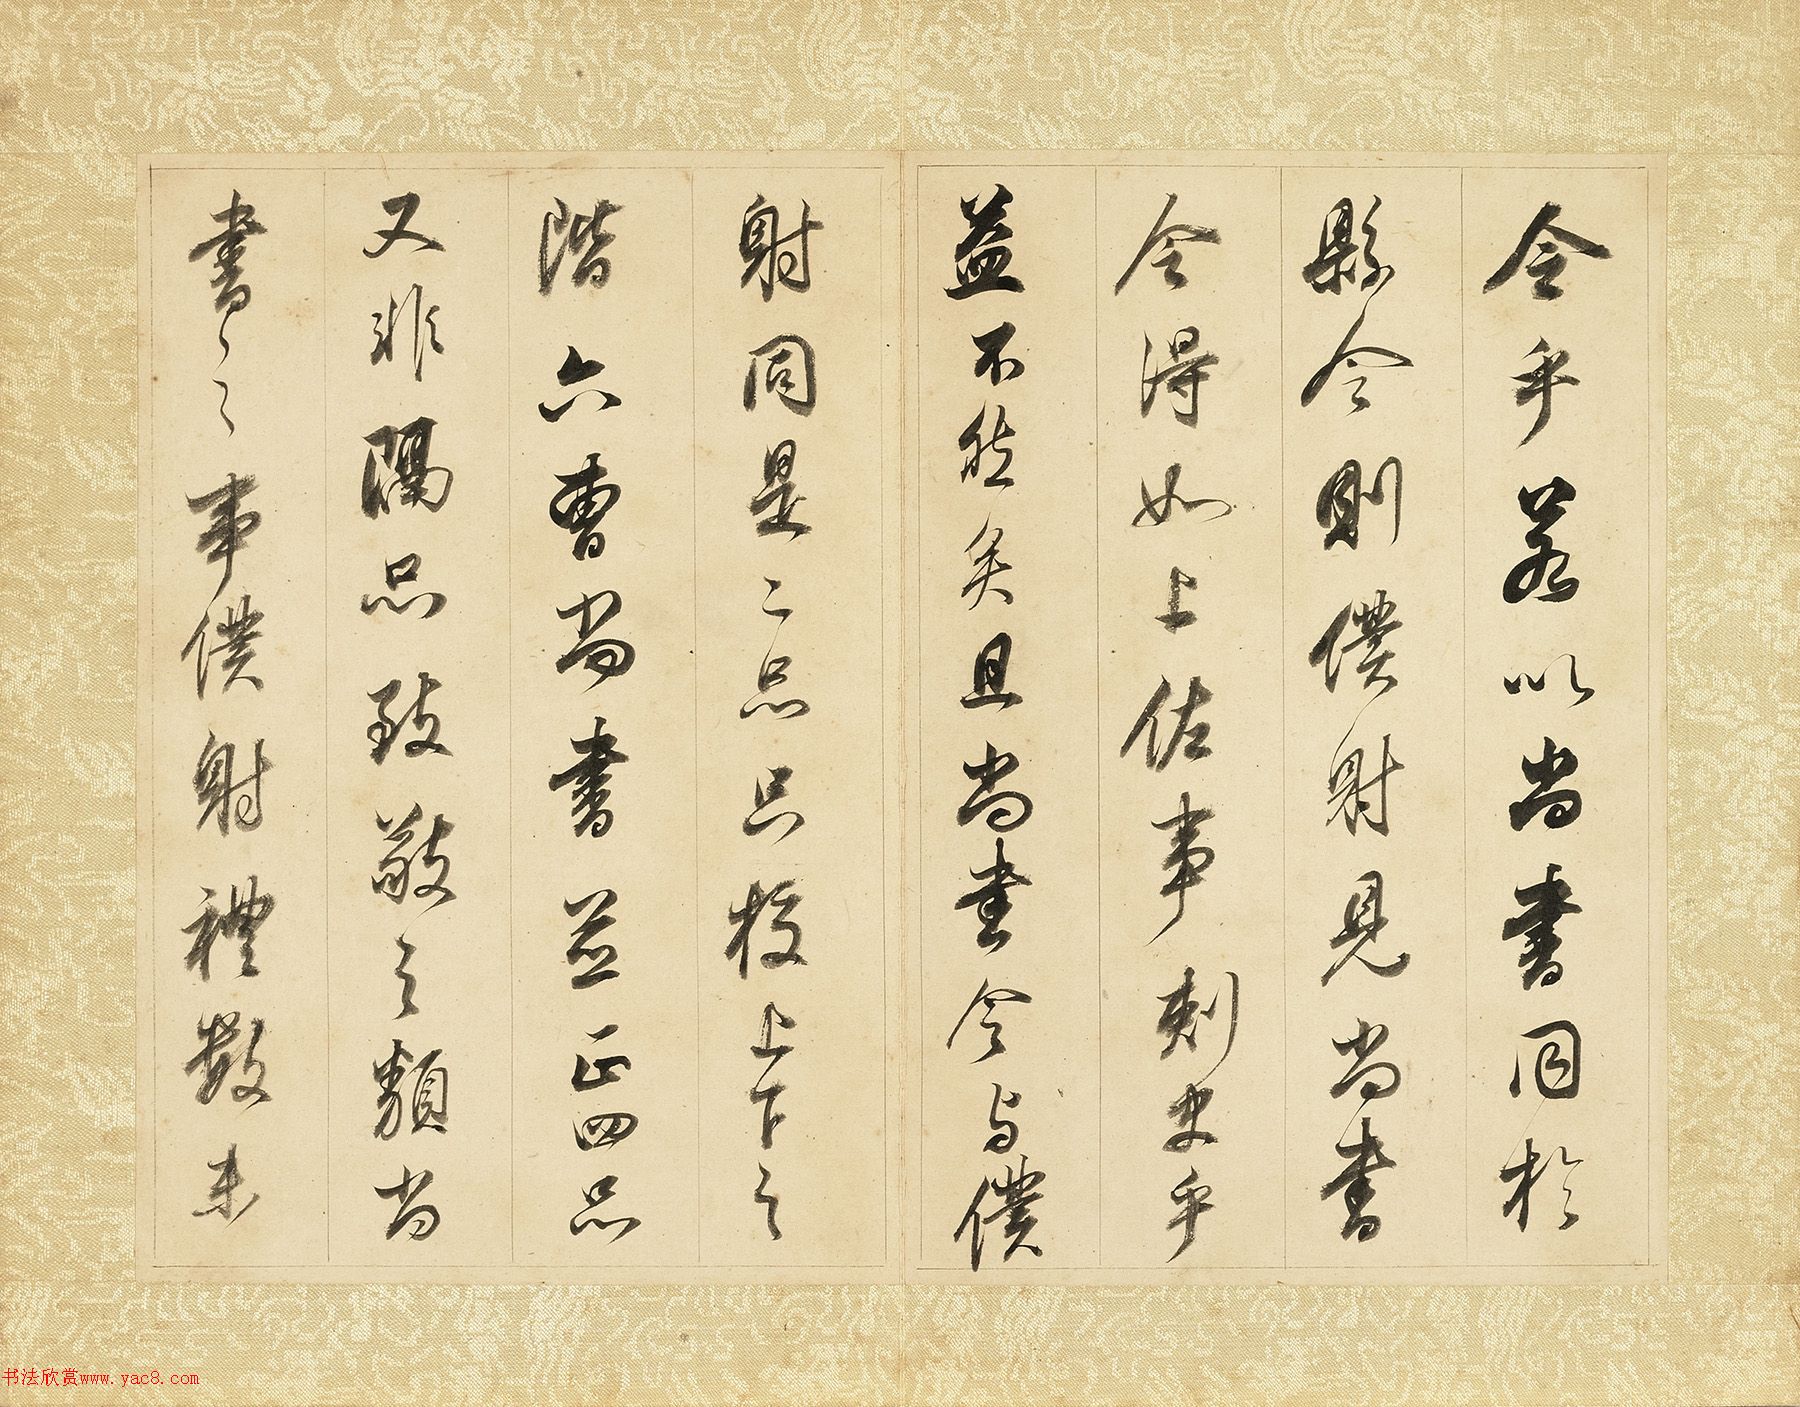 令乎若以尚書同於
縣令則僕射見尚書
令得如上佐事刺史乎
益不然矣且尚書令與僕
射同是二品只校上下之
階六曹尚書並正四品
又非隔品致敬之類尚
書之事僕射禮數未
书法欣赏www.yac8.com